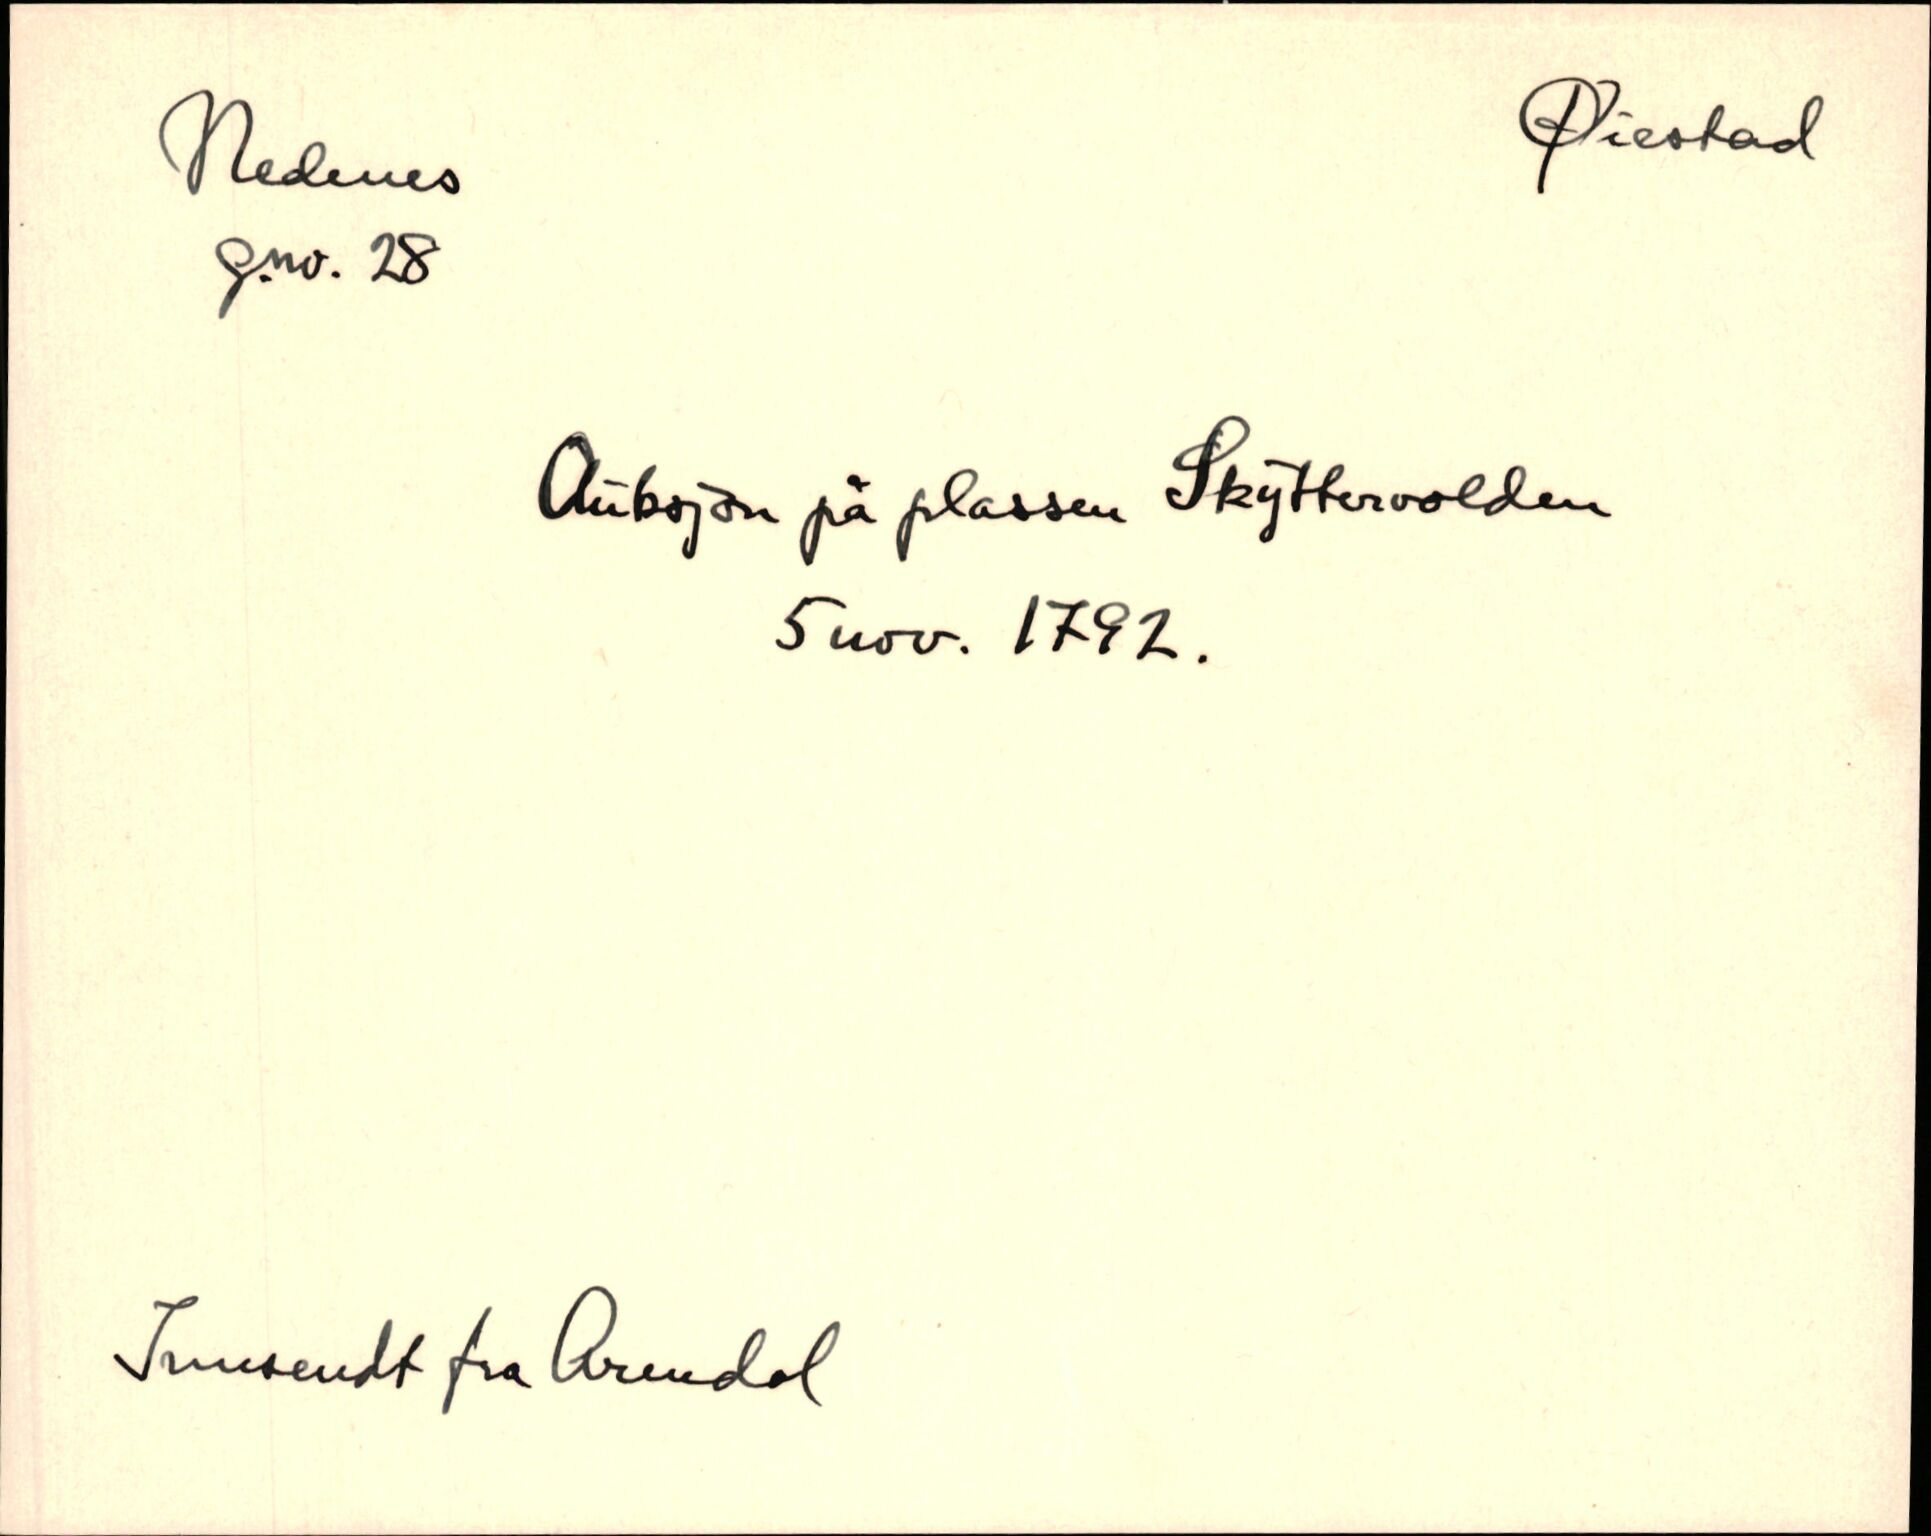 Nedenes
Øiestad
g.no. 28
Auksjon på plassen Skyttervolden
5 nov. 1792.
Innsendt fra Arendal